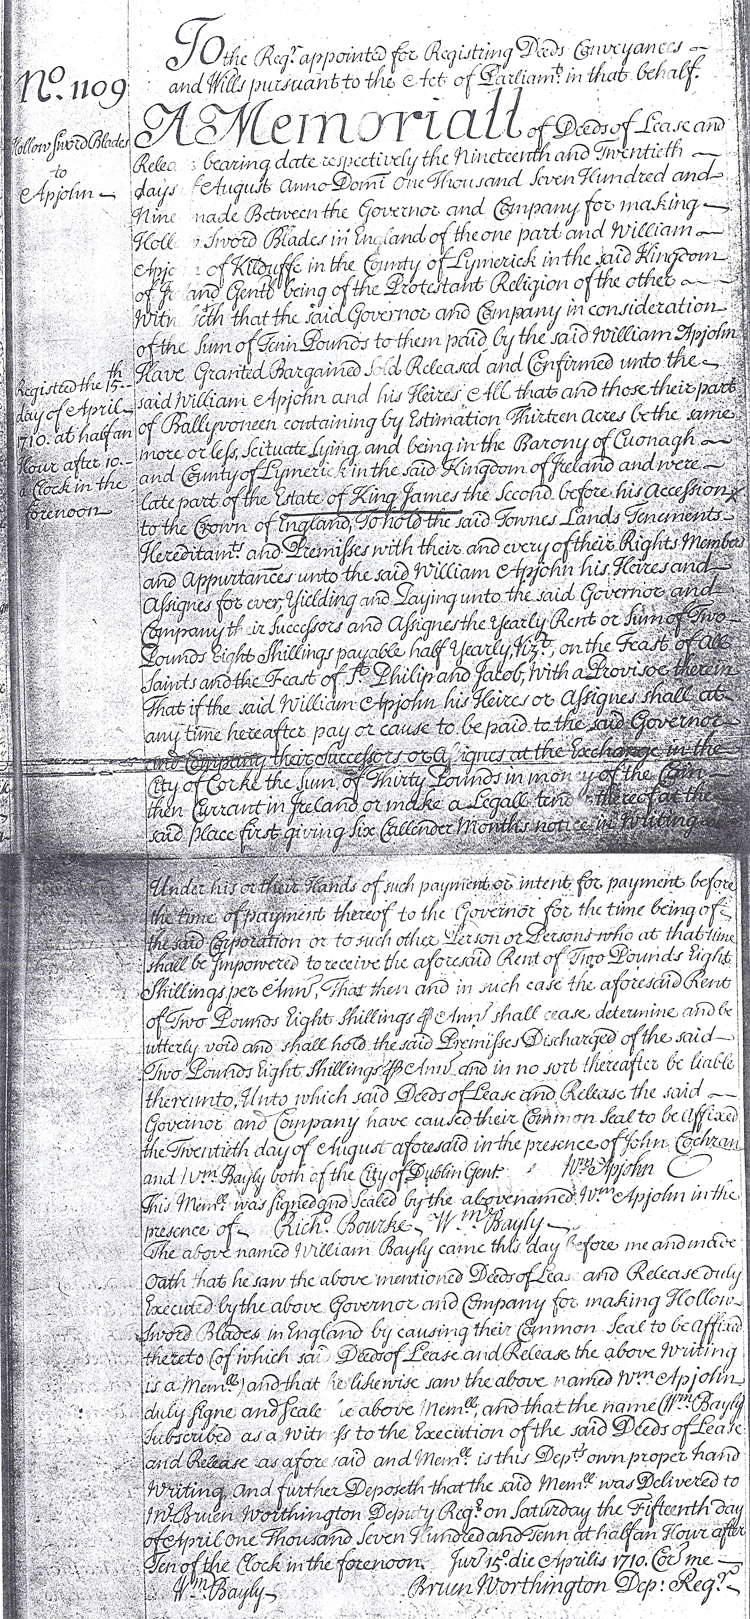 To the Regr. appointed for Registring Deeds Conveyances
and Wills pursuant to the Act of Parliamt. in that behalf.
No. 1109
Hollow Sword Blades
to
Apjohn
A Memoriall of Deeds of Lease and
Relea bearing date respectively the Nineteenth and Twentieth
days f August Anno Domi One Thousand Seven Hundred and
Nine made Between the Governor and Company for making
Hollow Sword Blades in England of the one part and William
Apjohn of Kilduffe in the County of Lymerick in the said Kingdom
of Ireland Gentl being of the Protestant Religion of the other
Witnesseth that the said Governor and Company in consideration
of the Sum of Tenn Pounds to them paid by the said William Apjohn
Have Granted Bargained Sold Released and Confirmed unto the
said William Apjohn and his Heires All that and those their part
of Ballyvoneen containing by Estimation Thirteen Acres be the same
more or less, Scituate Lying and being in the Barony of Cuonagh
and County of Lymerick in the said Kingdom of Ireland and were
late part of the Estate of King James the Second before his Accession
to the Crown of England, To hold the said Townes Lands Tenements
Hereditamts. and Premisses with their and every of their Rights Members
and Appurtances unto the said William Apjohn his Heires and
Assignes for ever, Yielding and Paying unto the said Governor and
Company their Successors and Assignes the Yearly Rent or Sum of Two
Pounds Eight Shillings payable half Yearly, Vizt., on the Feast of All
Saints and the Feast of St. Philip and Jacob, With a Provisoe therein
That if the said William Apjohn his Heires or Assignes shall at
any time hereafter pay or cause to be paid to the said Governor
and Company their Successors or Assignes at the Exchange in the
City of Corke the Sum of Thirty Pounds in money of the Coin
then Currant in Ireland or make a Legall tend thereof at the
said place first giving Six Callender Months notice in Writing
Registed the 15th
day of April
1710. at half an
Hour after 10
a Clock in the
forenoon
Under his or their Hands of such payment or intent for payment before
the time of payment thereof to the Governor for the time being of
the said Corporation or to such other Person or Persons who at that time
shall be Impowered to receive the aforesaid Rent of Two Pounds Eight
Shillings per Ann, That then and in such case the aforesaid Rent
of Two Pounds Eight Shillings p Ann shall cease determine and be
utterly void and shall hold the said Premisses Discharged of the said
Two Pounds Eight Shillings p Ann and in no sort thereafter be liable
thereunto, Unto which said Deeds of Lease and Release the said
Governor and Company have caused their Common Seal to be Affixed
the Twentieth day of August aforesaid in the presence of John Cochran
and Wm. Bayly both of the City of Dublin Gent. Wm Apjohn
This Memll. was signed and Sealed by the abovenamed Wm Apjohn in the
presence of Richd. Bourke Wm. Bayly
The above named William Bayly came this day before me and made
Oath that he saw the above mentioned Deeds of Lease and Release duly
Executed by the above Governor and Company for making Hollow
Sword Blades in England by causing their Common Seal to be Affixed
thereto (of which said Deeds of Lease and Release the above Writing
is a Memll.) and that he likewise saw the above named Wm Apjohn
duly Signe and Seale the above Memll., and that the name (Wm. Bayly
Subscribed as a Witness to the Execution of the said Deeds of Lease
and Release as aforesaid and Memll. is this Depts. own proper hand
Writing, and further Deposeth that the said Memll. was Delivered to
Mr. Bruen Worthington Deputy Regr. on Saturday the Fifteenth day
of April One Thousand Seven Hundred and Tenn at half an Hour after
Ten of the Clock in the forenoon. Jurt. 15o. die Aprilis 1710. Cor. me
Wm. Bayly Bruen Worthington Dep: Regr.